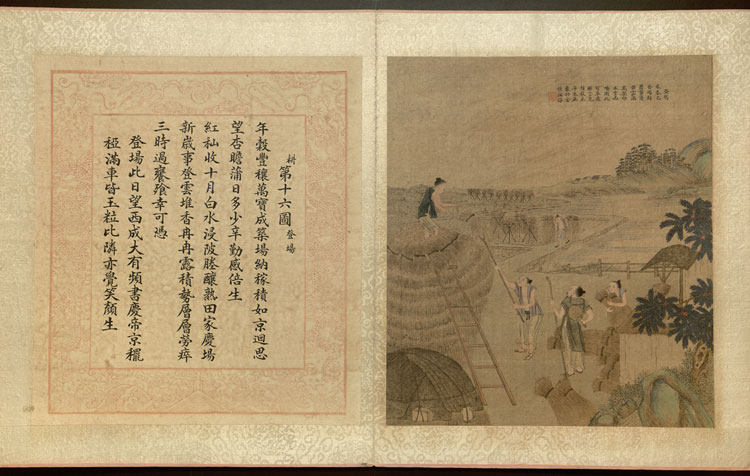 耕 第十六圖 登場
年穀豐穰萬寶成築場納稼積如京迴思
望杏瞻蒲日多少辛勤感倍生
紅秈收十月白水浸陂塍釀熟田家慶場
新歲事登雲堆香冉冉露積勢層層勞瘁
三時過饔飧幸可憑
登場此日望西成大有頻書慶帝京穲
稏滿車皆玉粒比隣亦覺笑顏生